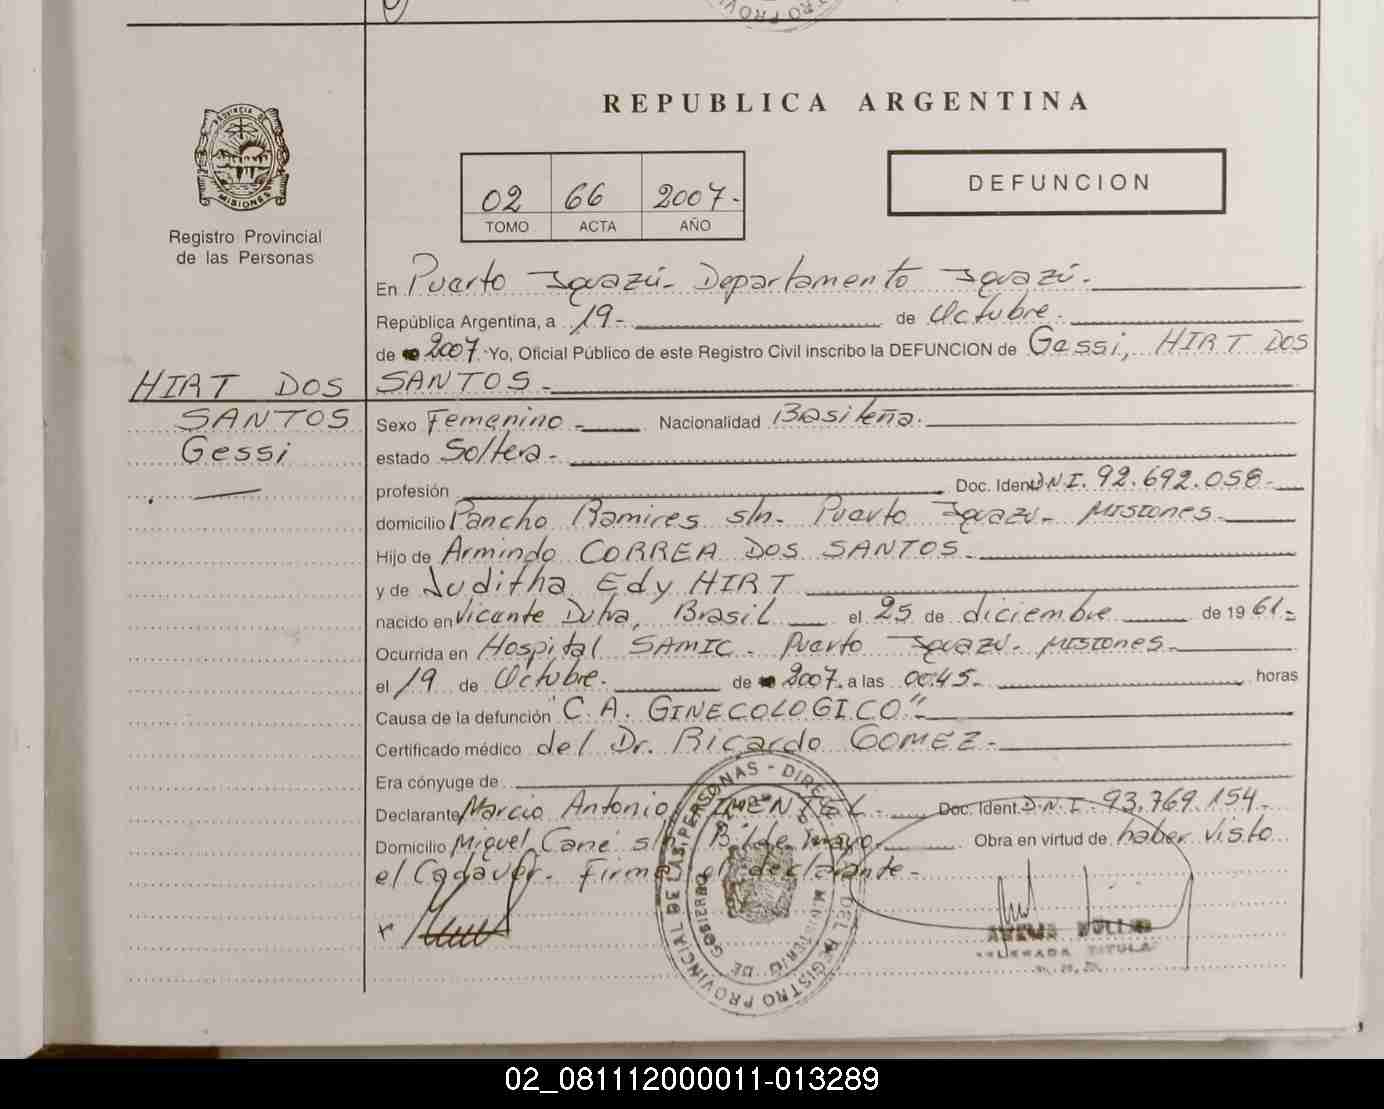 REPUBLICA ARGENTINA
PROVINCIA DE
MISIONES
Registro Provincial
de las Personas
02 66 2007.-
TOMO ACTA AÑO
DEFUNCION
En Puerto Iguazú- Departamento Iguazú.-
República Argentina, a 19.- de Octubre.
de 2007. Yo, Oficial Público de este Registro Civil inscribo la DEFUNCION de Gessi, HIRT DOS
SANTOS.-
HIRT DOS
SANTOS
Gessi
Sexo Femenino.- Nacionalidad Basileña.
estado Soltera.-
profesión Doc. Ident. D.N.I. 92.692.058.-
domicilio Pancho Ramires s/n. Puerto Iguazú- MISIONES.
Hijo de Armindo CORREA DOS SANTOS.-
y de Juditha Edy HIRT
nacido en Vicente Dutra, Brasil el 25 de diciembre de 19 61.-
Ocurrida en Hospital SAMIC. Puerto Iguazú- MISIONES.
el 19 de Octubre. de 2007. a las 00:45.- horas
Causa de la defunción "C.A. GINECOLOGICO".
Certificado médico del Dr. Ricardo GOMEZ.-
Era cónyuge de
Declarante Marcio Antonio PIMENTEL.- Doc. Ident. D.N.I. 93.769.154.-
Domicilio Miguel Cané s/n Bº 1º de mayo. Obra en virtud de haber visto
el Cadáver. Firma el declarante.-
DIRECC DEL REGISTRO PROVINCIAL DE LAS PERSONAS -
MINISTERIO DE GOBIERNO
02_081112000011-013289